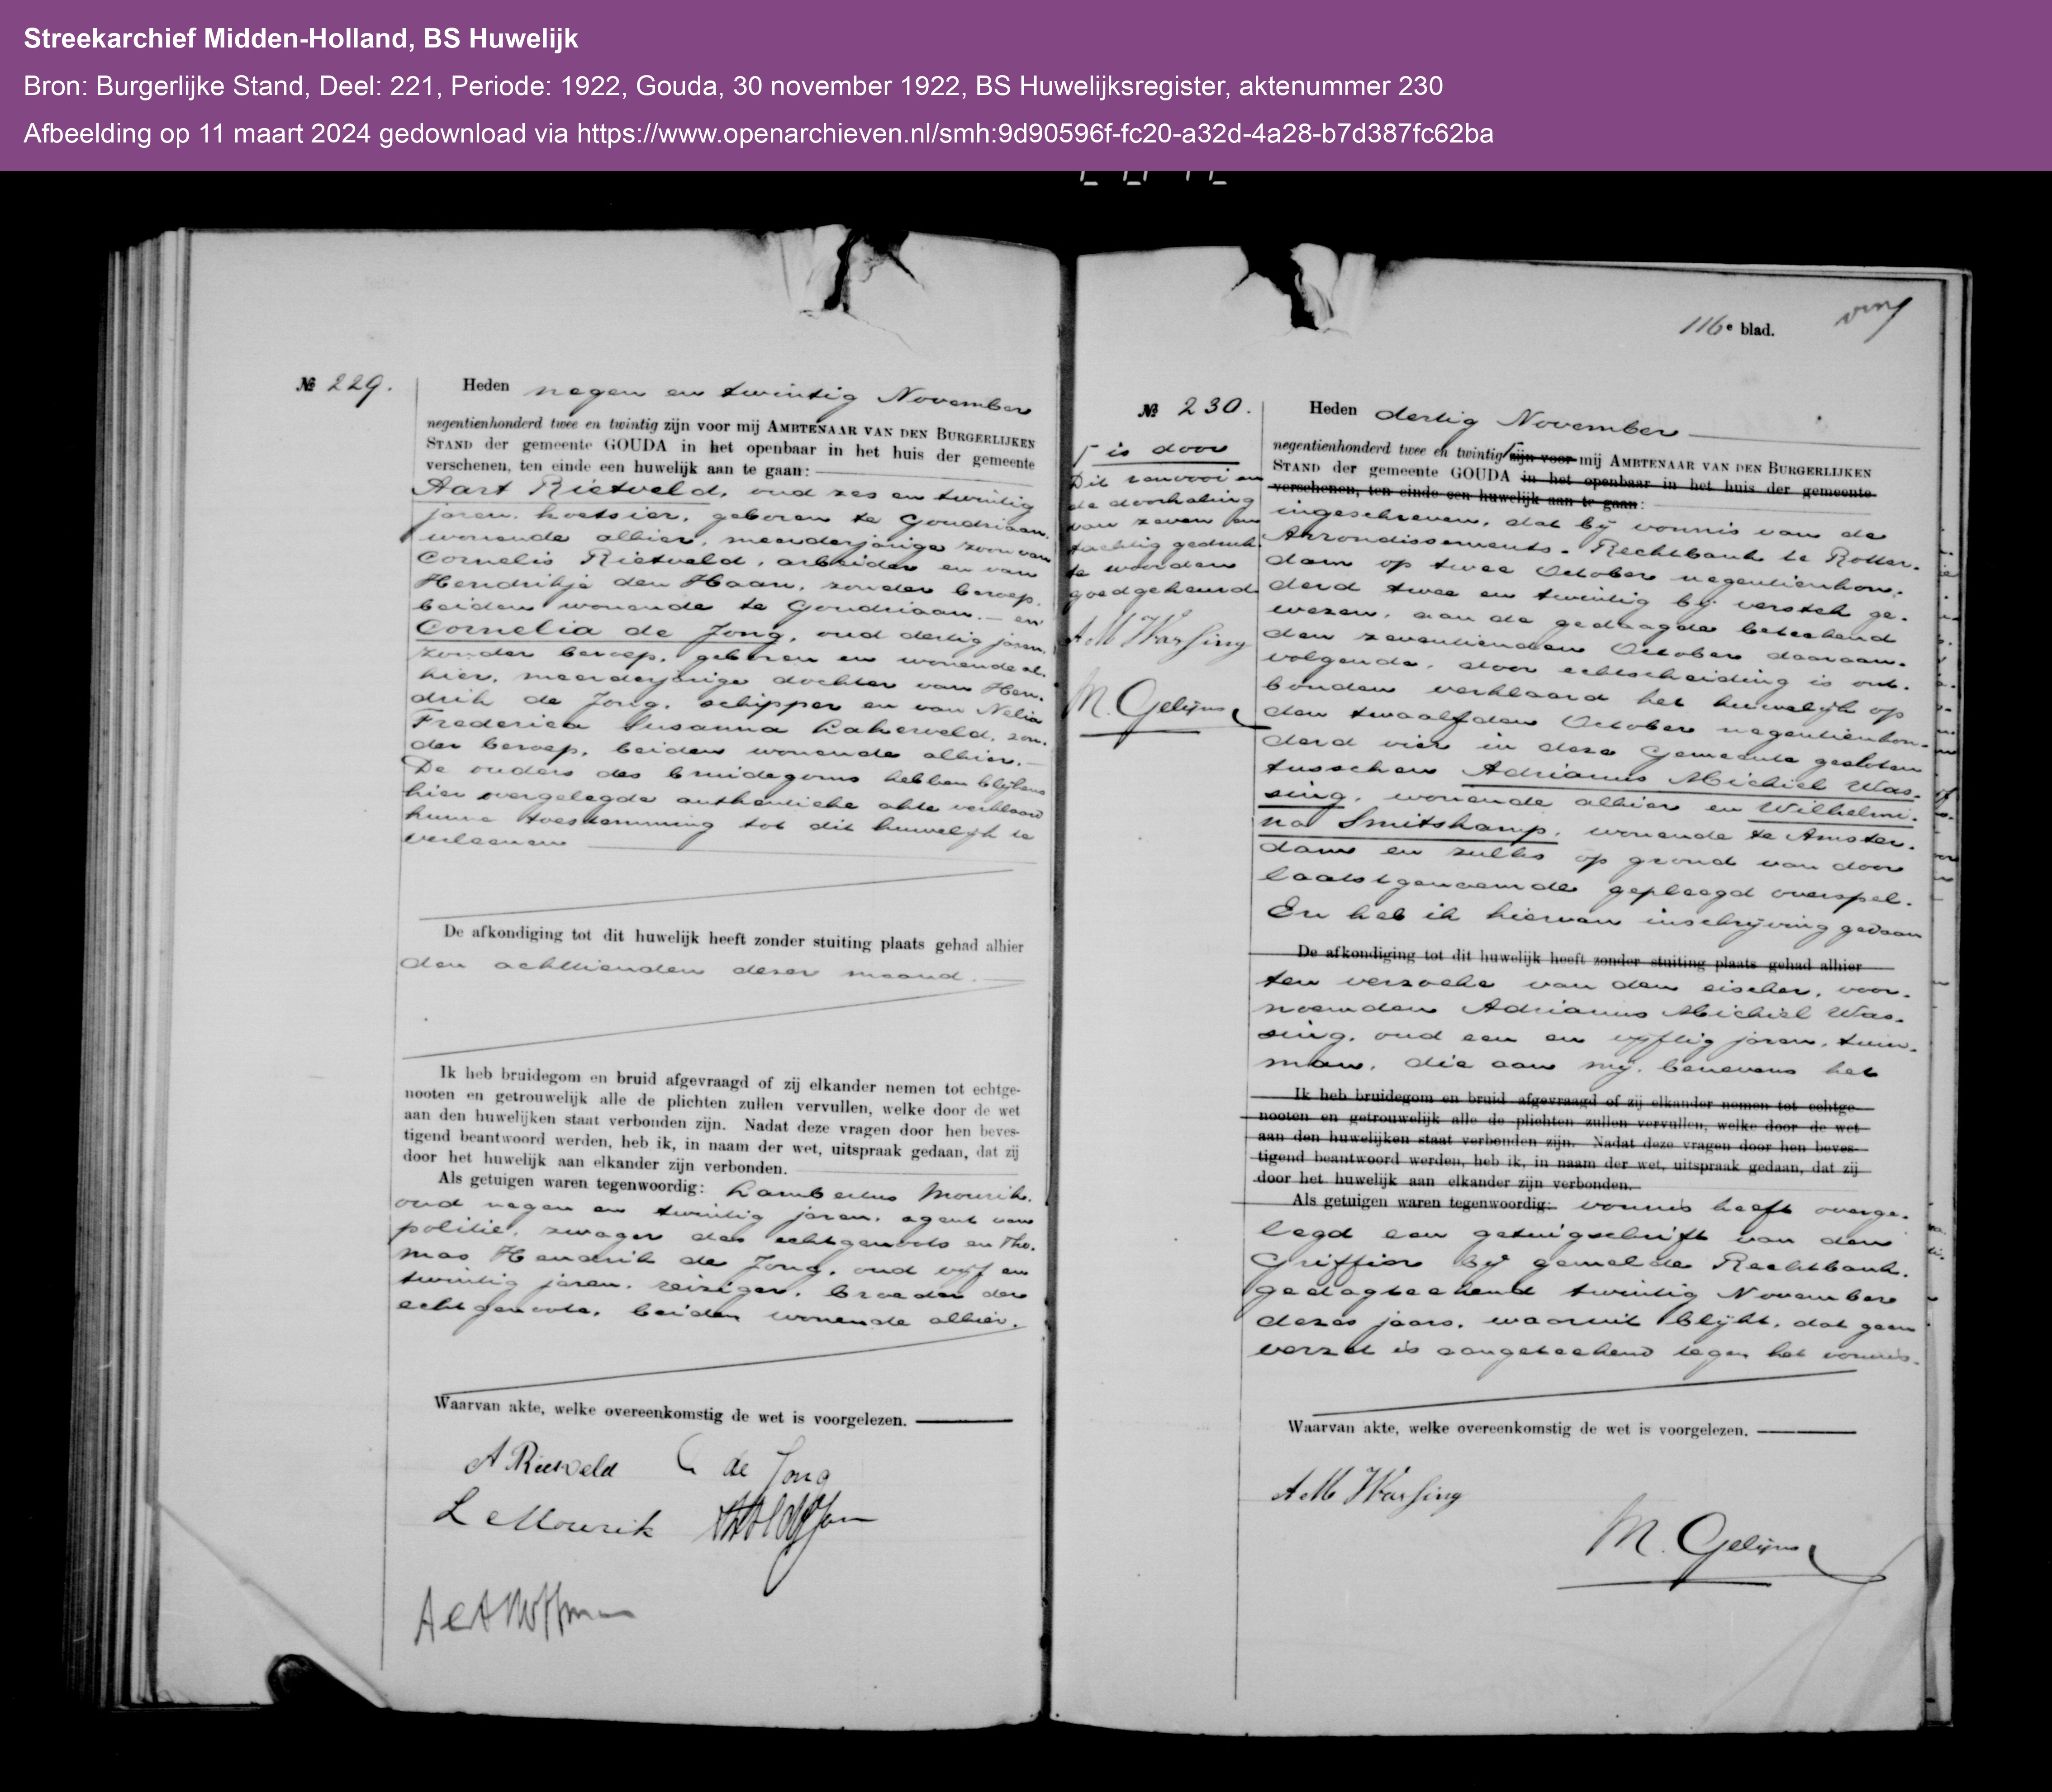 Streekarchief Midden-Holland, BS Huwelijk
Bron: Burgerlijke Stand, Deel: 221, Periode: 1922, Gouda, 30 november 1922, BS Huwelijksregister, aktenummer 230
Afbeelding op 11 maart 2024 gedownload via https://www.openarchieven.nl/smh:9d90596f-fc20-a32d-4a28-b7d387fc62ba
№ 229.
Heden negen en twintig November
negentienhonderd twee en twintig zijn voor mij AMBTENAAR VAN DEN BURGERLIJKEN
STAND der gemeente GOUDA in het openbaar in het huis der gemeente
verschenen, ten einde een huwelijk aan te gaan:
Aart Rietveld, oud zes en twintig
jaren, koetsier, geboren te Goudriaan,
wonende alhier, meerderjarige zoon van
Cornelis Rietveld, arbeider en van
Hendrikje den Haan, zonder beroep,
beiden wonende te Goudriaan. – en
Cornelia de Jong, oud dertig jaren,
zonder beroep, geboren en wonende al-
hier, meerderjarige dochter van Hen-
drik de Jong, schipper en van Nelia
Frederica Susanna Lakerveld, zon-
der beroep, beiden wonende alhier. –
De ouders des bruidegoms hebben blijkens
hier overgelegde authentieke akte verklaard
hunne toestemming tot dit huwelijk te
verleenen
De afkondiging tot dit huwelijk heeft zonder stuiting plaats gehad alhier
den achttienden dezer maand.
Ik heb bruidegom en bruid afgevraagd of zij elkander nemen tot echtge-
nooten en getrouwelijk alle de plichten zullen vervullen, welke door de wet
aan den huwelijken staat verbonden zijn. Nadat deze vragen door hen beves-
tigend beantwoord werden, heb ik, in naam der wet, uitspraak gedaan, dat zij
door het huwelijk aan elkander zijn verbonden.
Als getuigen waren tegenwoordig: Lambertus Mourik,
oud negen en twintig jaren, agent van
politie, zwager des echtgenoots en Tho-
mas Hendrik de Jong, oud vijf en
twintig jaren, reiziger, broeder der
echtgenoote, beiden wonende alhier.
Waarvan akte, welke overeenkomstig de wet is voorgelezen.
A Rietveld C de Jong
L Mourik
116e blad.
№ 230.
is door
Dit renvooi en
de doorhaling
van zeven en
tachtig gedruk-
te woorden
goedgekeurd
A M Wassing
M. Gelijns
Heden dertig November
negentienhonderd twee en twintig zijn voor mij AMBTENAAR VAN DEN BURGERLIJKEN
STAND der gemeente GOUDA in het openbaar in het huis der gemeente
verschenen, ten einde een huwelijk aan te gaan:
ingeschreven, dat bij vonnis van de
Arrondissements-Rechtbank te Rotter-
dam op twee October negentienhon-
derd twee en twintig bij verstek ge-
wezen, aan de gedaagde beteekend
den zeventienden October daaraan-
volgende, door echtscheiding is ont-
bonden verklaard het huwelijk op
den twaalfden October negentienhon-
derd vier in deze Gemeente gesloten
tusschen Adrianus Michiel Was-
sing, wonende alhier en Wilhelmi-
na Smitskamp, wonende te Amster-
dam en zulks op grond van door
laatstgenoemde gepleegd overspel.
En heb ik hiervan inschrijving gedaan
De afkondiging tot dit huwelijk heeft zonder stuiting plaats gehad alhier
ten verzoeke van den eischer, voor-
noemden Adrianus Michiel Was-
sing, oud een en vijftig jaren, tuin-
man, die aan mij, benevens het
Ik heb bruidegom en bruid afgevraagd of zij elkander nemen tot echtge-
nooten en getrouwelijk alle de plichten zullen vervullen, welke door de wet
aan den huwelijken staat verbonden zijn. Nadat deze vragen door hen beves-
tigend beantwoord werden, heb ik, in naam der wet, uitspraak gedaan, dat zij
door het huwelijk aan elkander zijn verbonden.
Als getuigen waren tegenwoordig: vonnis heeft overge-
legd een getuigschrift van den
Griffier bij gemelde Rechtbank,
gedagteekend twintig November
dezes jaars, waaruit blijkt, dat geen
verzet is aangeteekend tegen het vonnis.
Waarvan akte, welke overeenkomstig de wet is voorgelezen.
A M Wassing
M. Gelijns